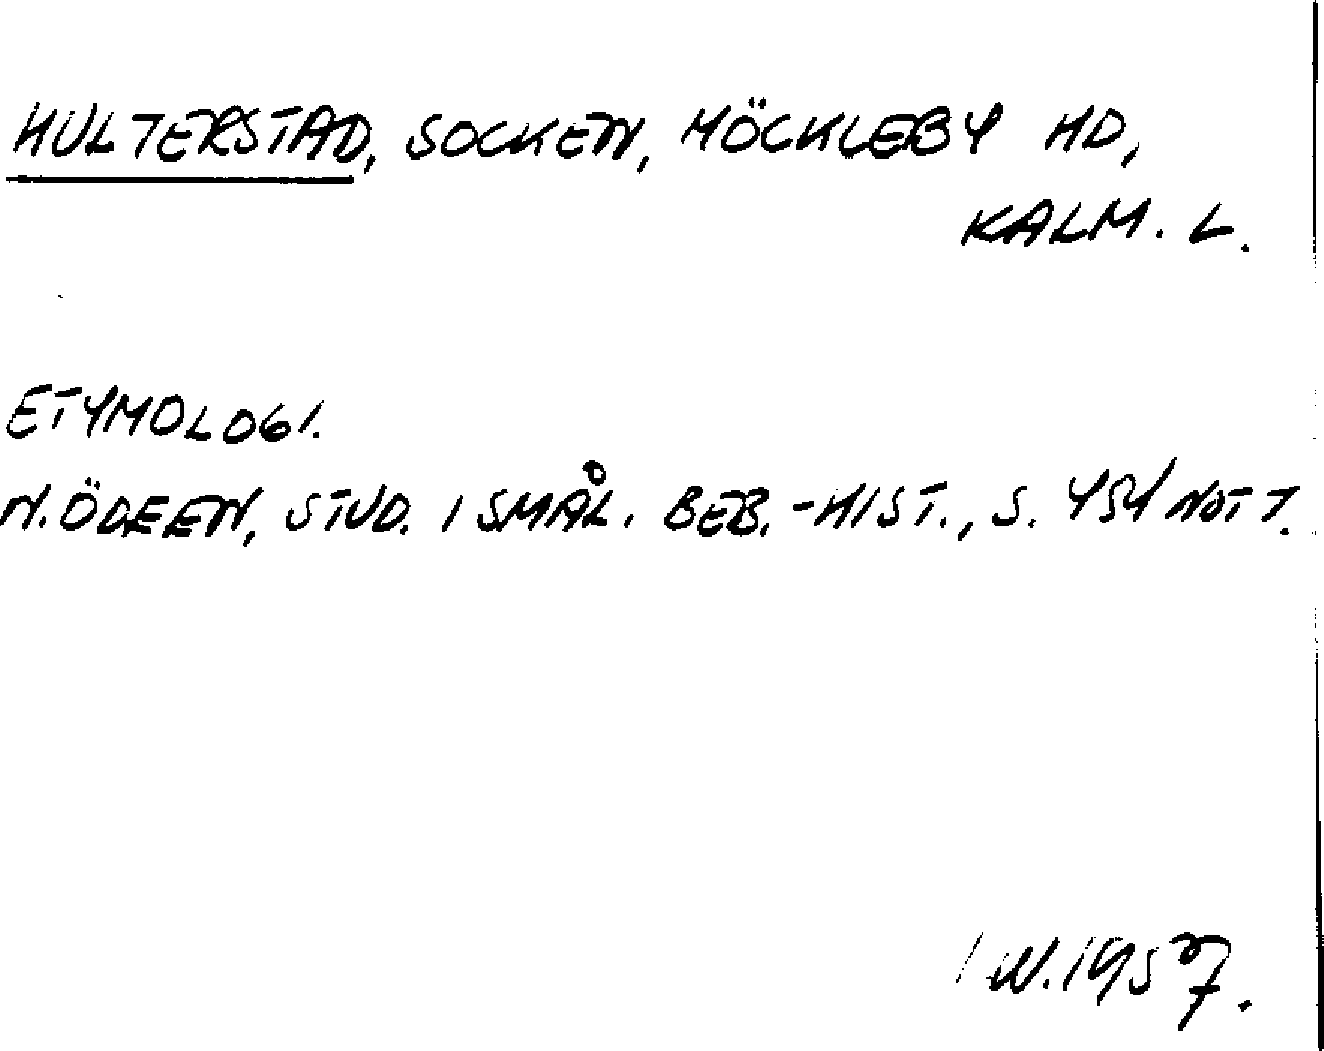 HULTERSTAD, SOCKEN, MÖCKLEBY HD,
KALM. L.
ETYMOLOGI.
N. ÖDEEN, STUD. I SMÅL. BEB.-HIST., S. 454 NOT 7.
I W. 1957.